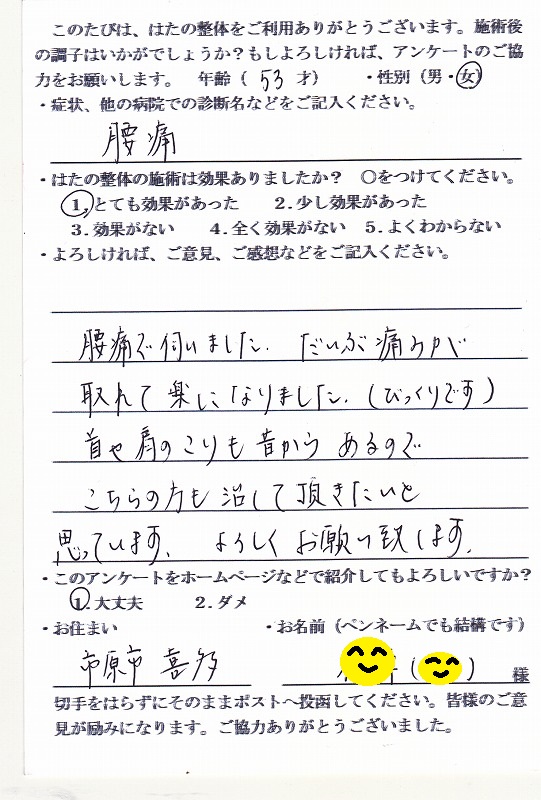 このたびは、はたの整体をご利用ありがとうございます。施術後
の調子はいかがでしょうか？もしよろしければ、アンケートのご協
力をお願いします。　年齢（ 53 才）　・性別（男・女）
・症状、他の病院での診断名などをご記入ください。
腰痛
・はたの整体の施術は効果ありましたか？　〇をつけてください。
1. とても効果があった　2. 少し効果があった
3. 効果がない　4. 全く効果がない　5. よくわからない
・よろしければ、ご意見、ご感想などをご記入ください。
腰痛で伺いました. だいぶ痛みが
取れて楽になりました.（びっくりです）
首や肩のこりも昔からあるので
こちらの方も治して頂きたいと
思っています. よろしくお願い致します.
・このアンケートをホームページなどで紹介してもよろしいですか？
1. 大丈夫　2. ダメ
・お住まい　・お名前（ペンネームでも結構です）
市原市 喜多　（　）様
切手をはらずにそのままポストへ投函してください。皆様のご意
見が励みになります。ご協力ありがとうございました。